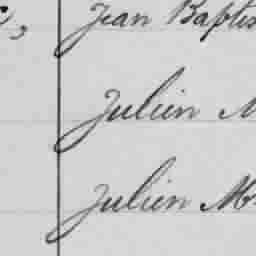 Jean Baptis
Julien M
Julien M